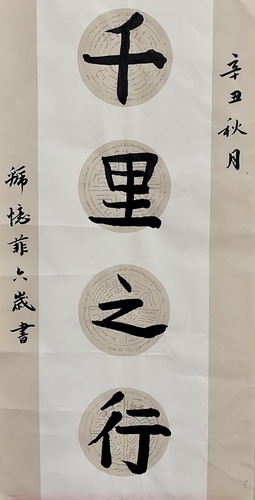 辛丑秋月
千里之行
憶菲六歲書